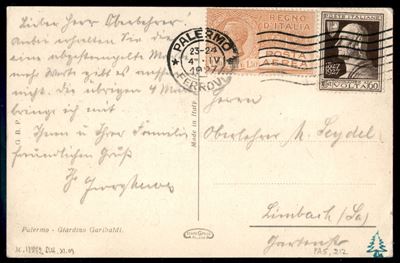 Lieber Herr Oberlehrer.
Anbei erhalten Sie die
eine abgestempelte Marke
nach Worte gibt es
nicht. Die übrigen 4 M
bringe ich mit
Ihnen u Ihrer Familie
freundlichen Gruß
Ihr
Palermo - Giardino Garibaldi.
G. B. P.
Made in Italy
PALERMO
23-24
4 · IV
1927
FERROVIA
REGNO D'ITALIA
POSTA AEREA
1.50
POSTE ITALIANE
A. VOLTA
60
Herrn
Oberlehrer M. Seydel
Limbach (Sa)
Gartenstr
PA5, 212